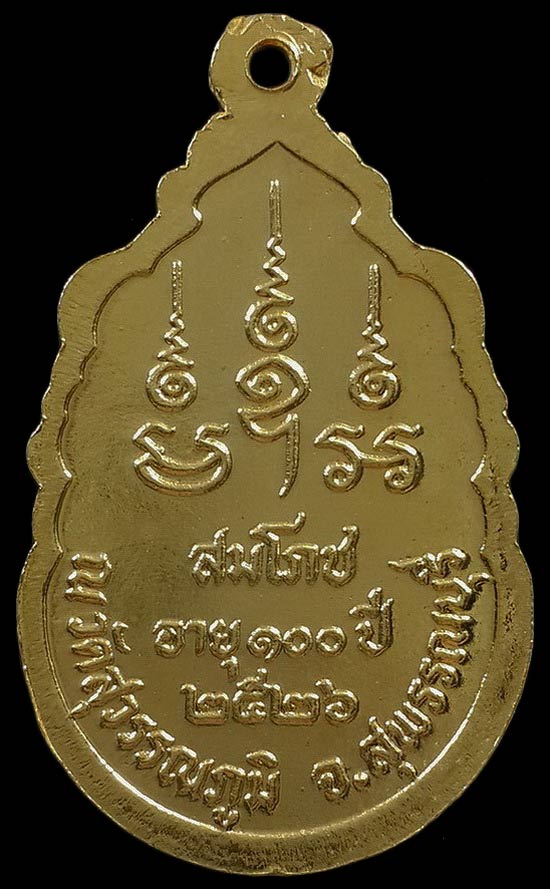 สมโภช
อายุ ๑๐๐ ปี
๒๕๒๖
ณ วัดสุวรรณภูมิ จ.สุพรรณบุรี